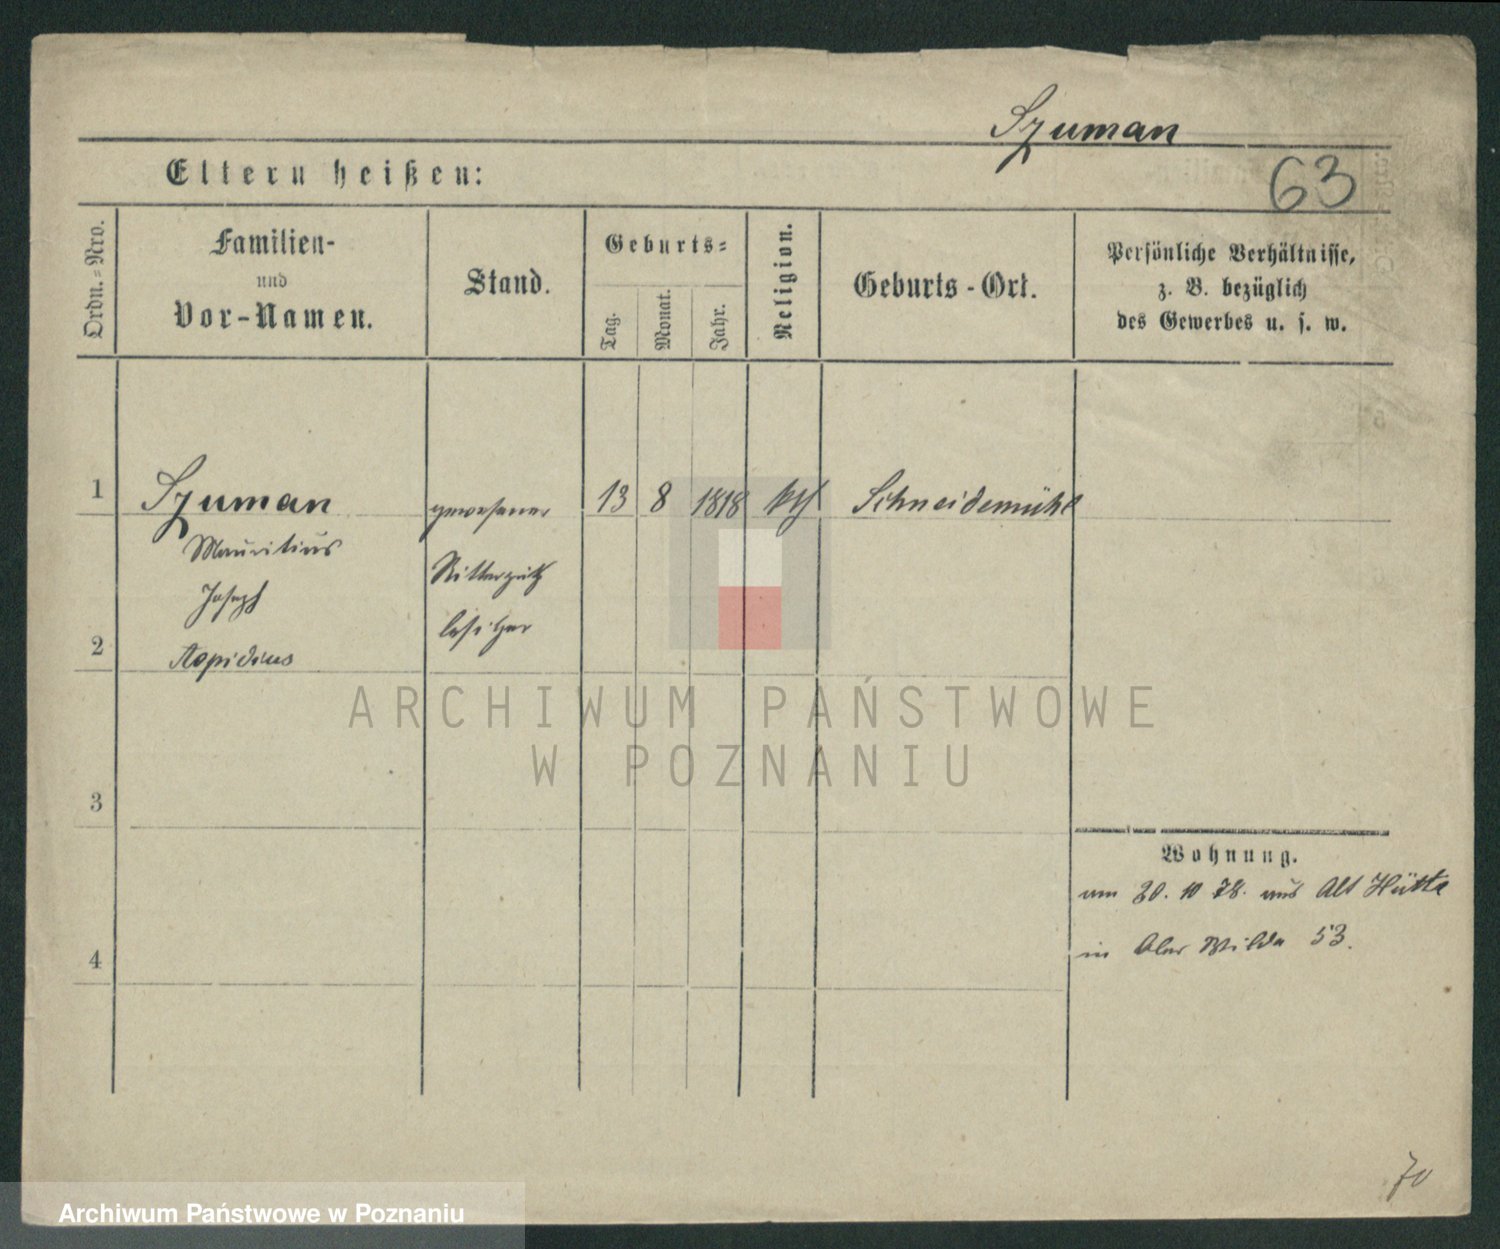 Szuman
Eltern heißen:
63
Ordn.=Nro.
Familien-
und
Vor-Namen.
Stand.
Geburts=
Tag.
Monat.
Jahr.
Religion.
Geburts-Ort.
Persönliche Verhältnisse,
z. B. bezüglich
des Gewerbes u. s. w.
1
Szuman
gewesener
13 8 1818 kth
Schneidemühl
Mauritius
Ritterguts
Joseph
besitzer
2
3
ARCHIWUM PAŃSTWOWE
W POZNANIU
Wohnung.
am 20. 10 78. aus Alt Hütte
in Ober Wilda 53.
4
70
Archiwum Państwowe w Poznaniu